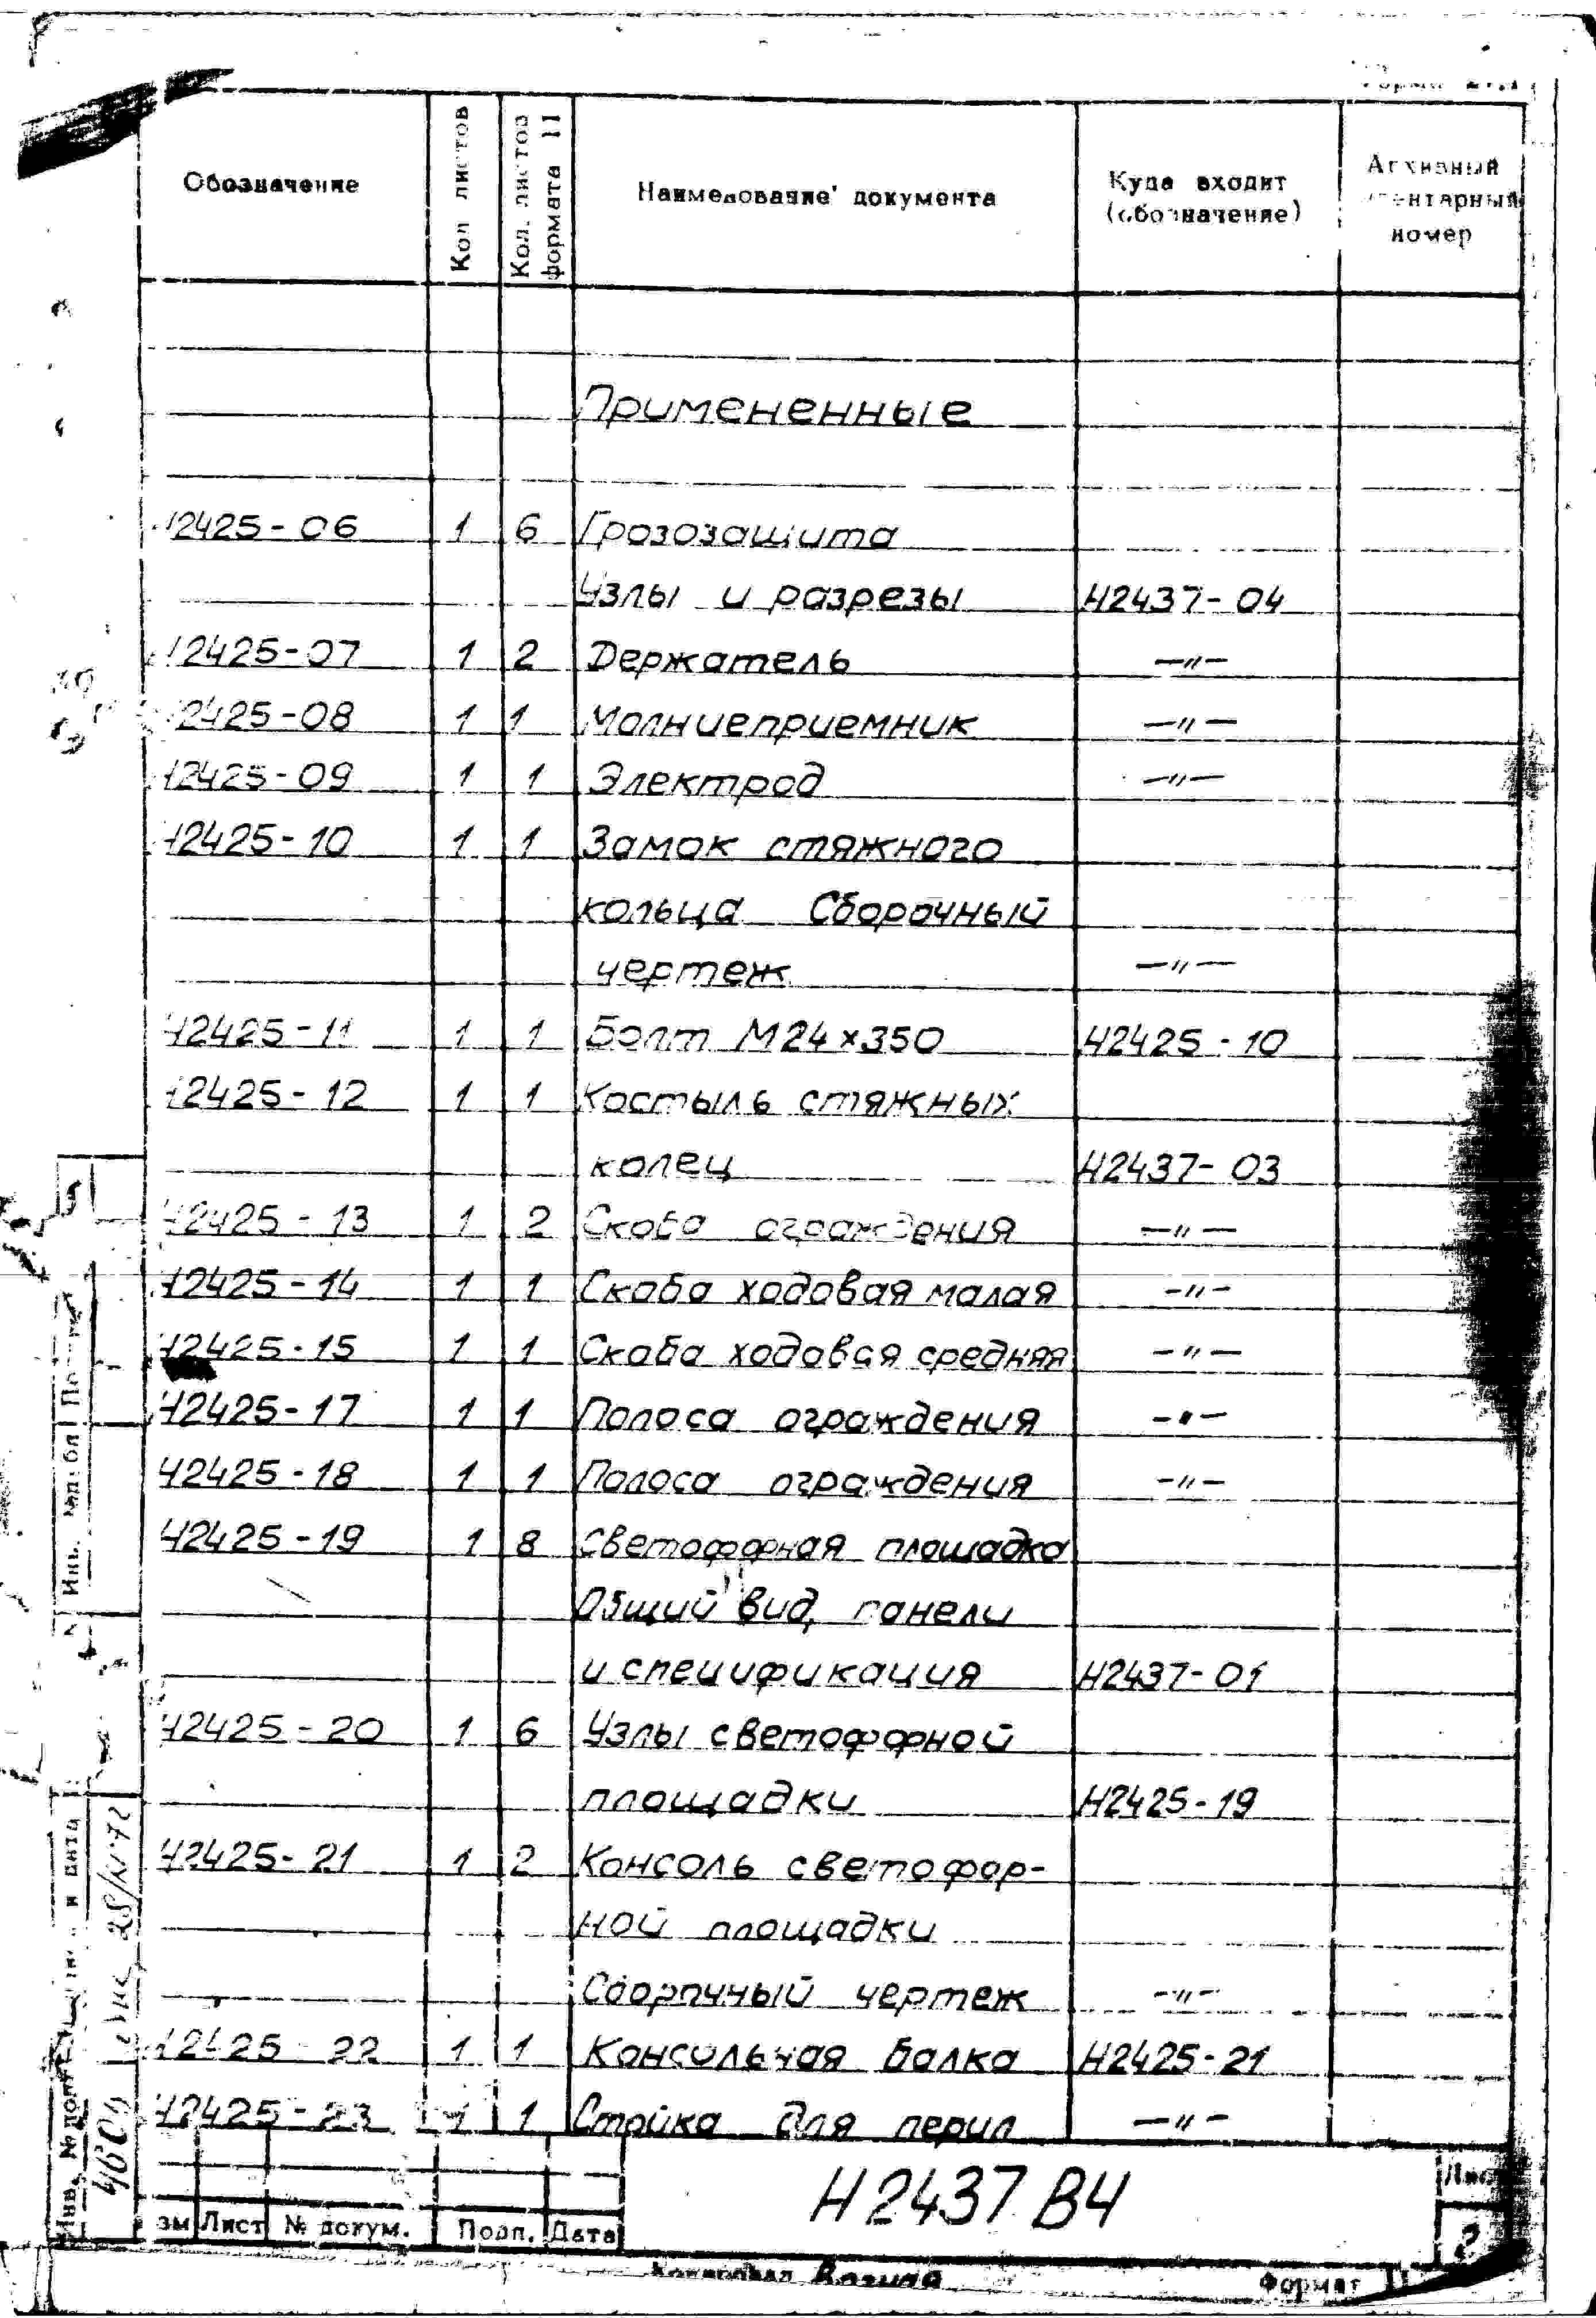 Обозначение | Кол листов | Кол. листов формата 11 | Наименование документа | Куда входит (обозначение) | Архивный инвентарный номер
Примененные
Н2425-06 1 6 Грозозащита
Узлы и разрезы Н2437-04
Н2425-07 1 2 Держатель —〃—
Н2425-08 1 1 Молниеприемник —〃—
Н2425-09 1 1 Электрод —〃—
Н2425-10 1 1 Замок стяжного
кольца Сборочный
чертеж —〃—
Н2425-11 1 1 Болт М24×350 Н2425-10
Н2425-12 1 1 Костыль стяжных
колец Н2437-03
Н2425-13 1 2 Скоба ограждения —〃—
Н2425-14 1 1 Скоба ходовая малая —〃—
Н2425-15 1 1 Скоба ходовая средняя —〃—
Н2425-17 1 1 Полоса ограждения —〃—
Н2425-18 1 1 Полоса ограждения —〃—
Н2425-19 1 8 Светофорная площадка
Общий вид, панели
и спецификация Н2437-01
Н2425-20 1 6 Узлы светофорной
площадки Н2425-19
Н2425-21 1 2 Консоль светофор-
ной площадки
Сборочный чертеж —〃—
Н2425-22 1 1 Консольная балка Н2425-21
Н2425-23 1 1 Стойка для перил —〃—
Н2437 ВЧ
Лист
2
зм Лист № докум. Подп. Дата
Копировал
Формат 11